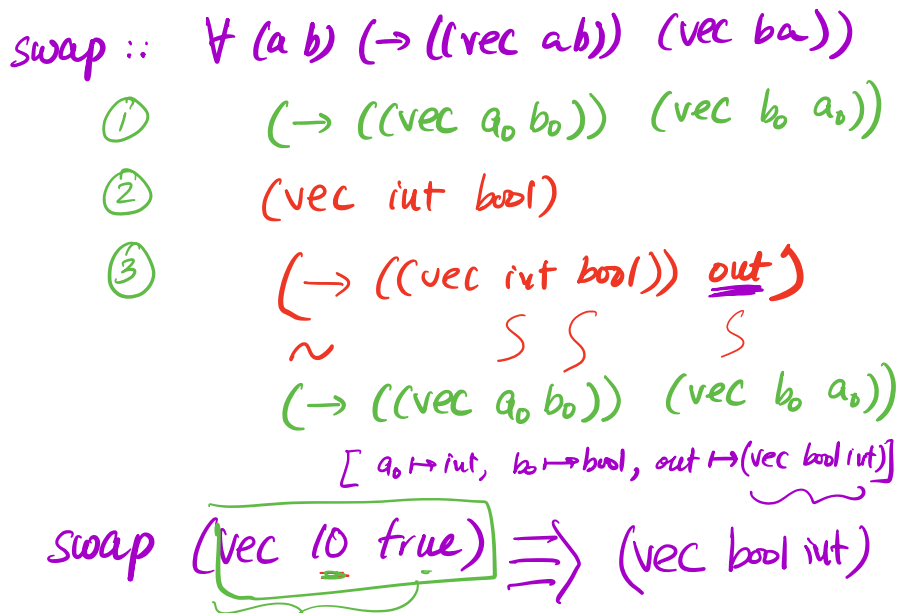 swap :: ∀ (a b) (→ ((vec a b)) (vec b a))
① (→ ((vec a₀ b₀)) (vec b₀ a₀))
② (vec int bool)
③ (→ ((vec int bool)) out)
~ ∫ ∫ ∫
(→ ((vec a₀ b₀)) (vec b₀ a₀))
[ a₀ ↦ int, b₀ ↦ bool, out ↦ (vec bool int)]
swap (vec 10 true) ⇒ (vec bool int)